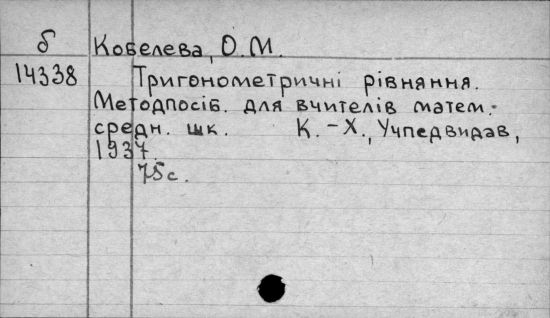 б Кобелева, О.М.
14338 Тригонометричні рівняння.
Методпосіб. для вчителів матем.
средн. шк. К.-Х., Учпедвидав,
1937.
75с.